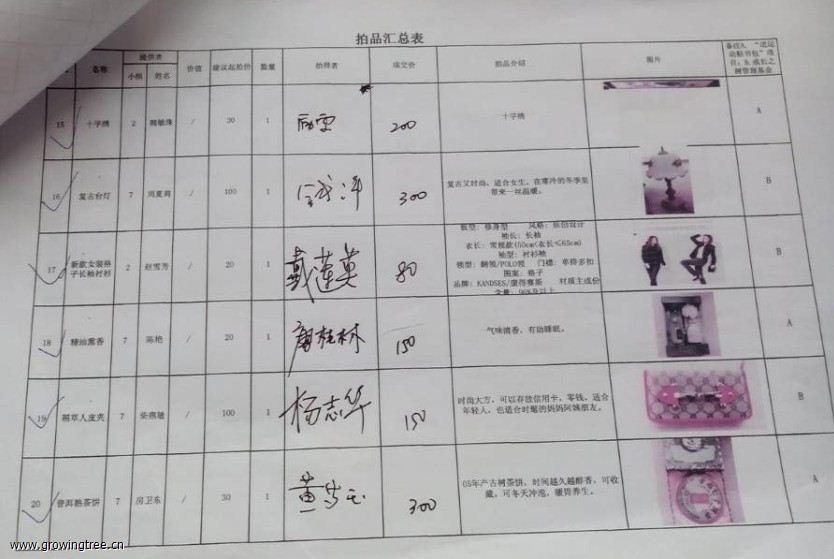 拍品汇总表
名称 提供者 价值 建议起拍价 数量 拍得者 成交价 拍品介绍 图片 备注A："送运
动鞋书包"项
目；B：成长之
树管理基金
小组 姓名
15 十字绣 2 魏敏珠 / 30 1 200 十字绣 A
16 复古台灯 7 周夏莉 / 100 1 300 复古又时尚，适合女生，在寒冷的冬季里
带来一丝温暖。 B
17 新款女装格
子长袖衬衫 2 赵雪芳 / 20 1 戴莲英 80 版型：修身型 风格：原创设计
袖长：长袖
衣长：常规款(50cm<衣长≤65cm)
袖型：衬衫袖
领型：翻领/POLO领 门襟：单排多扣
图案：格子
品牌：KANDSES/康得赛斯 材质主成份
含量：96%及以上 B
18 精油熏香 7 陈艳 / 20 1 唐桂林 150 气味清香，有助睡眠。 A
19 稻草人皮夹 7 柴燕敏 / 100 1 杨志华 150 时尚大方，可以存放信用卡，零钱，适合
年轻人，也适合时髦的妈妈阿姨朋友。 B
20 普洱熟茶饼 7 房卫东 / 30 1 300 05年产古树茶饼，时间越久越醇香，可收
藏，可冬天冲泡，暖胃养生。 A
www.growingtree.cn